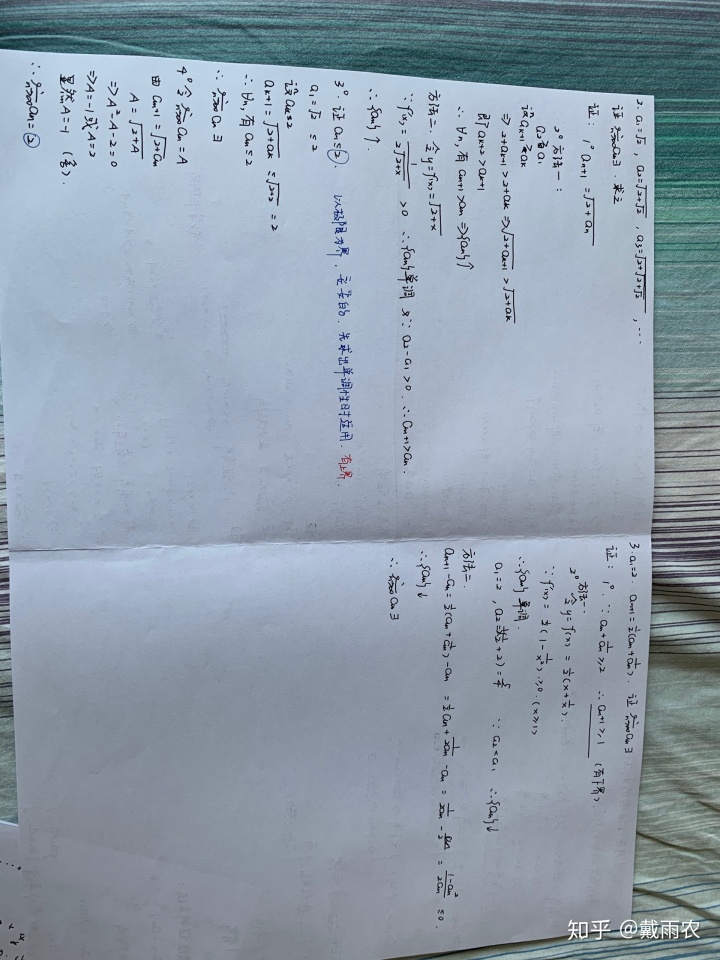 2. a₁=√2, a₂=√(2+√2), a₃=√(2+√(2+√2)), …
证 lim n→∞ aₙ∃. 求之
证: 1° aₙ₊₁=√(2+aₙ)
2° 方法一:
a₂≥a₁
设aₖ₊₁≥aₖ
⇒2+aₖ₊₁>2+aₖ⇒√(2+aₖ₊₁)>√(2+aₖ)
即aₖ₊₂>aₖ₊₁
∴∀n, 有aₙ₊₁>aₙ⇒{aₙ}↑
方法二, 令y=f(x)=√(2+x)
∵f'(x)=1/(2√(2+x))>0 ∴{aₙ}单调 又∵a₂-a₁>0. ∴aₙ₊₁>aₙ.
∴{aₙ}↑
3° 证aₙ≤2. 以极限为界, 主要的. 先求出单调性时运用. 有上界.
a₁=√2≤2
设aₖ≤2
aₖ₊₁=√(2+aₖ)≤√(2+2)=2
∴∀n, 有aₙ≤2
∴lim n→∞ aₙ∃
4° 令lim n→∞ aₙ=A
由aₙ₊₁=√(2+aₙ)
A=√(2+A)
⇒A²-A-2=0
⇒A=-1或A=2
显然A=-1 (舍).
∴lim n→∞ aₙ=2
3. a₁=2. aₙ₊₁=½(aₙ+1/aₙ). 证lim n→∞ aₙ∃
证: 1° ∵aₙ+1/aₙ≥2 ∴aₙ₊₁≥1 (有下界).
2° 方法一:
令y=f(x)=½(x+1/x).
∵f'(x)=½(1-1/x²)≥0. (x≥1)
∴{aₙ}单调.
a₁=2, a₂=½(½+2)=5/4 ∵a₂<a₁ ∴{aₙ}↓
方法二.
aₙ₊₁-aₙ=½(aₙ+1/aₙ)-aₙ=½aₙ+1/(2aₙ)-aₙ=1/(2aₙ)-aₙ/2=(1-aₙ²)/(2aₙ)≤0.
∴{aₙ}↓
∴lim n→∞ aₙ∃
知乎 @戴雨农